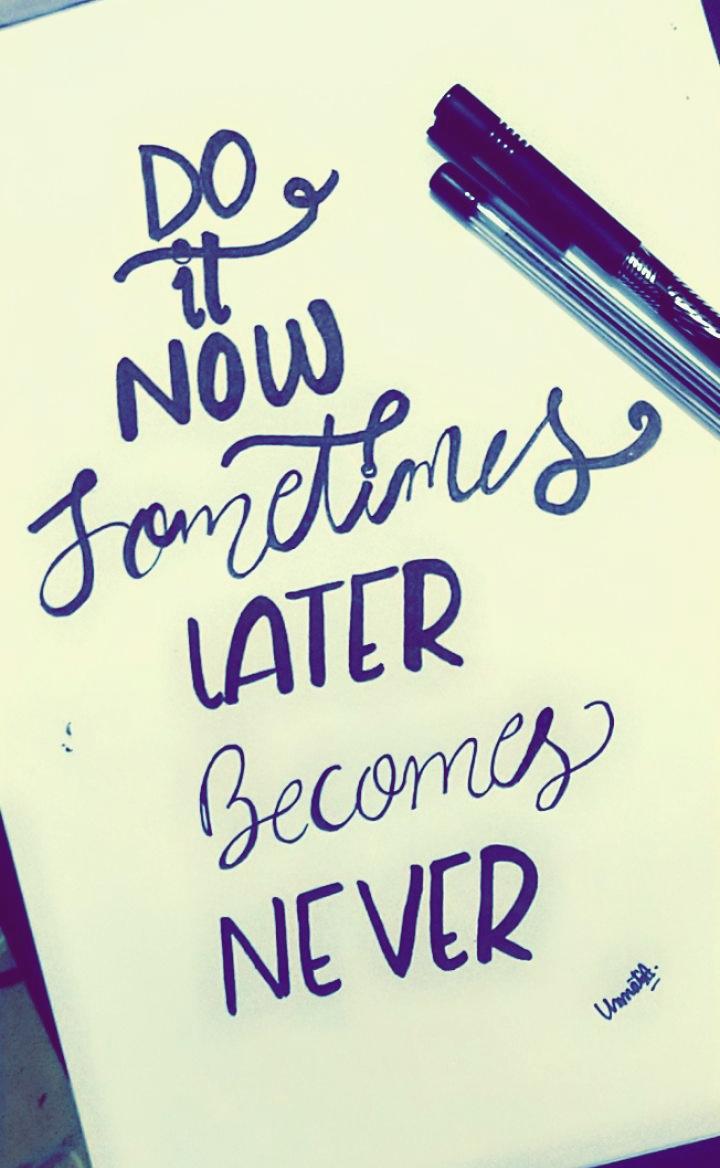 DO
it
NOW
Sometimes
LATER
Becomes
NEVER